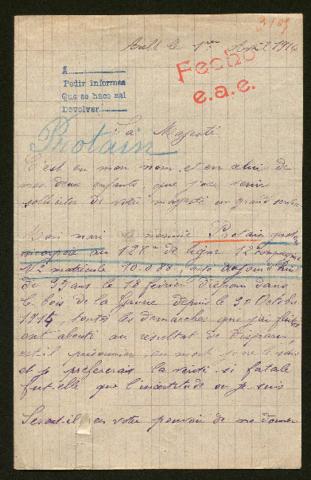 le 1er 1916
Fecho
e.a.e.
A
Pedir informes
Que se hace mal
Devolver
Rotain
Sa Majesté
C'est en mon nom, et en celui de
mes deux enfants, que j'ose venir
solliciter de votre majesté un grand
Mon mari le nommé Rotain
au 128e de ligne 12e compagnie
No matricule 10.088
de 33 ans le 18 février disparu dans
le bois de la Grurie depuis le 20 Octobre
1914, toutes les démarches que j'ai faites
ont abouti au résultat de disparu,
est-il prisonnier ou mort je ne le sais
et je préférerais la vérité si fatale
fut-elle que l'incertitude où je suis
Serait-il en votre pouvoir de me donner